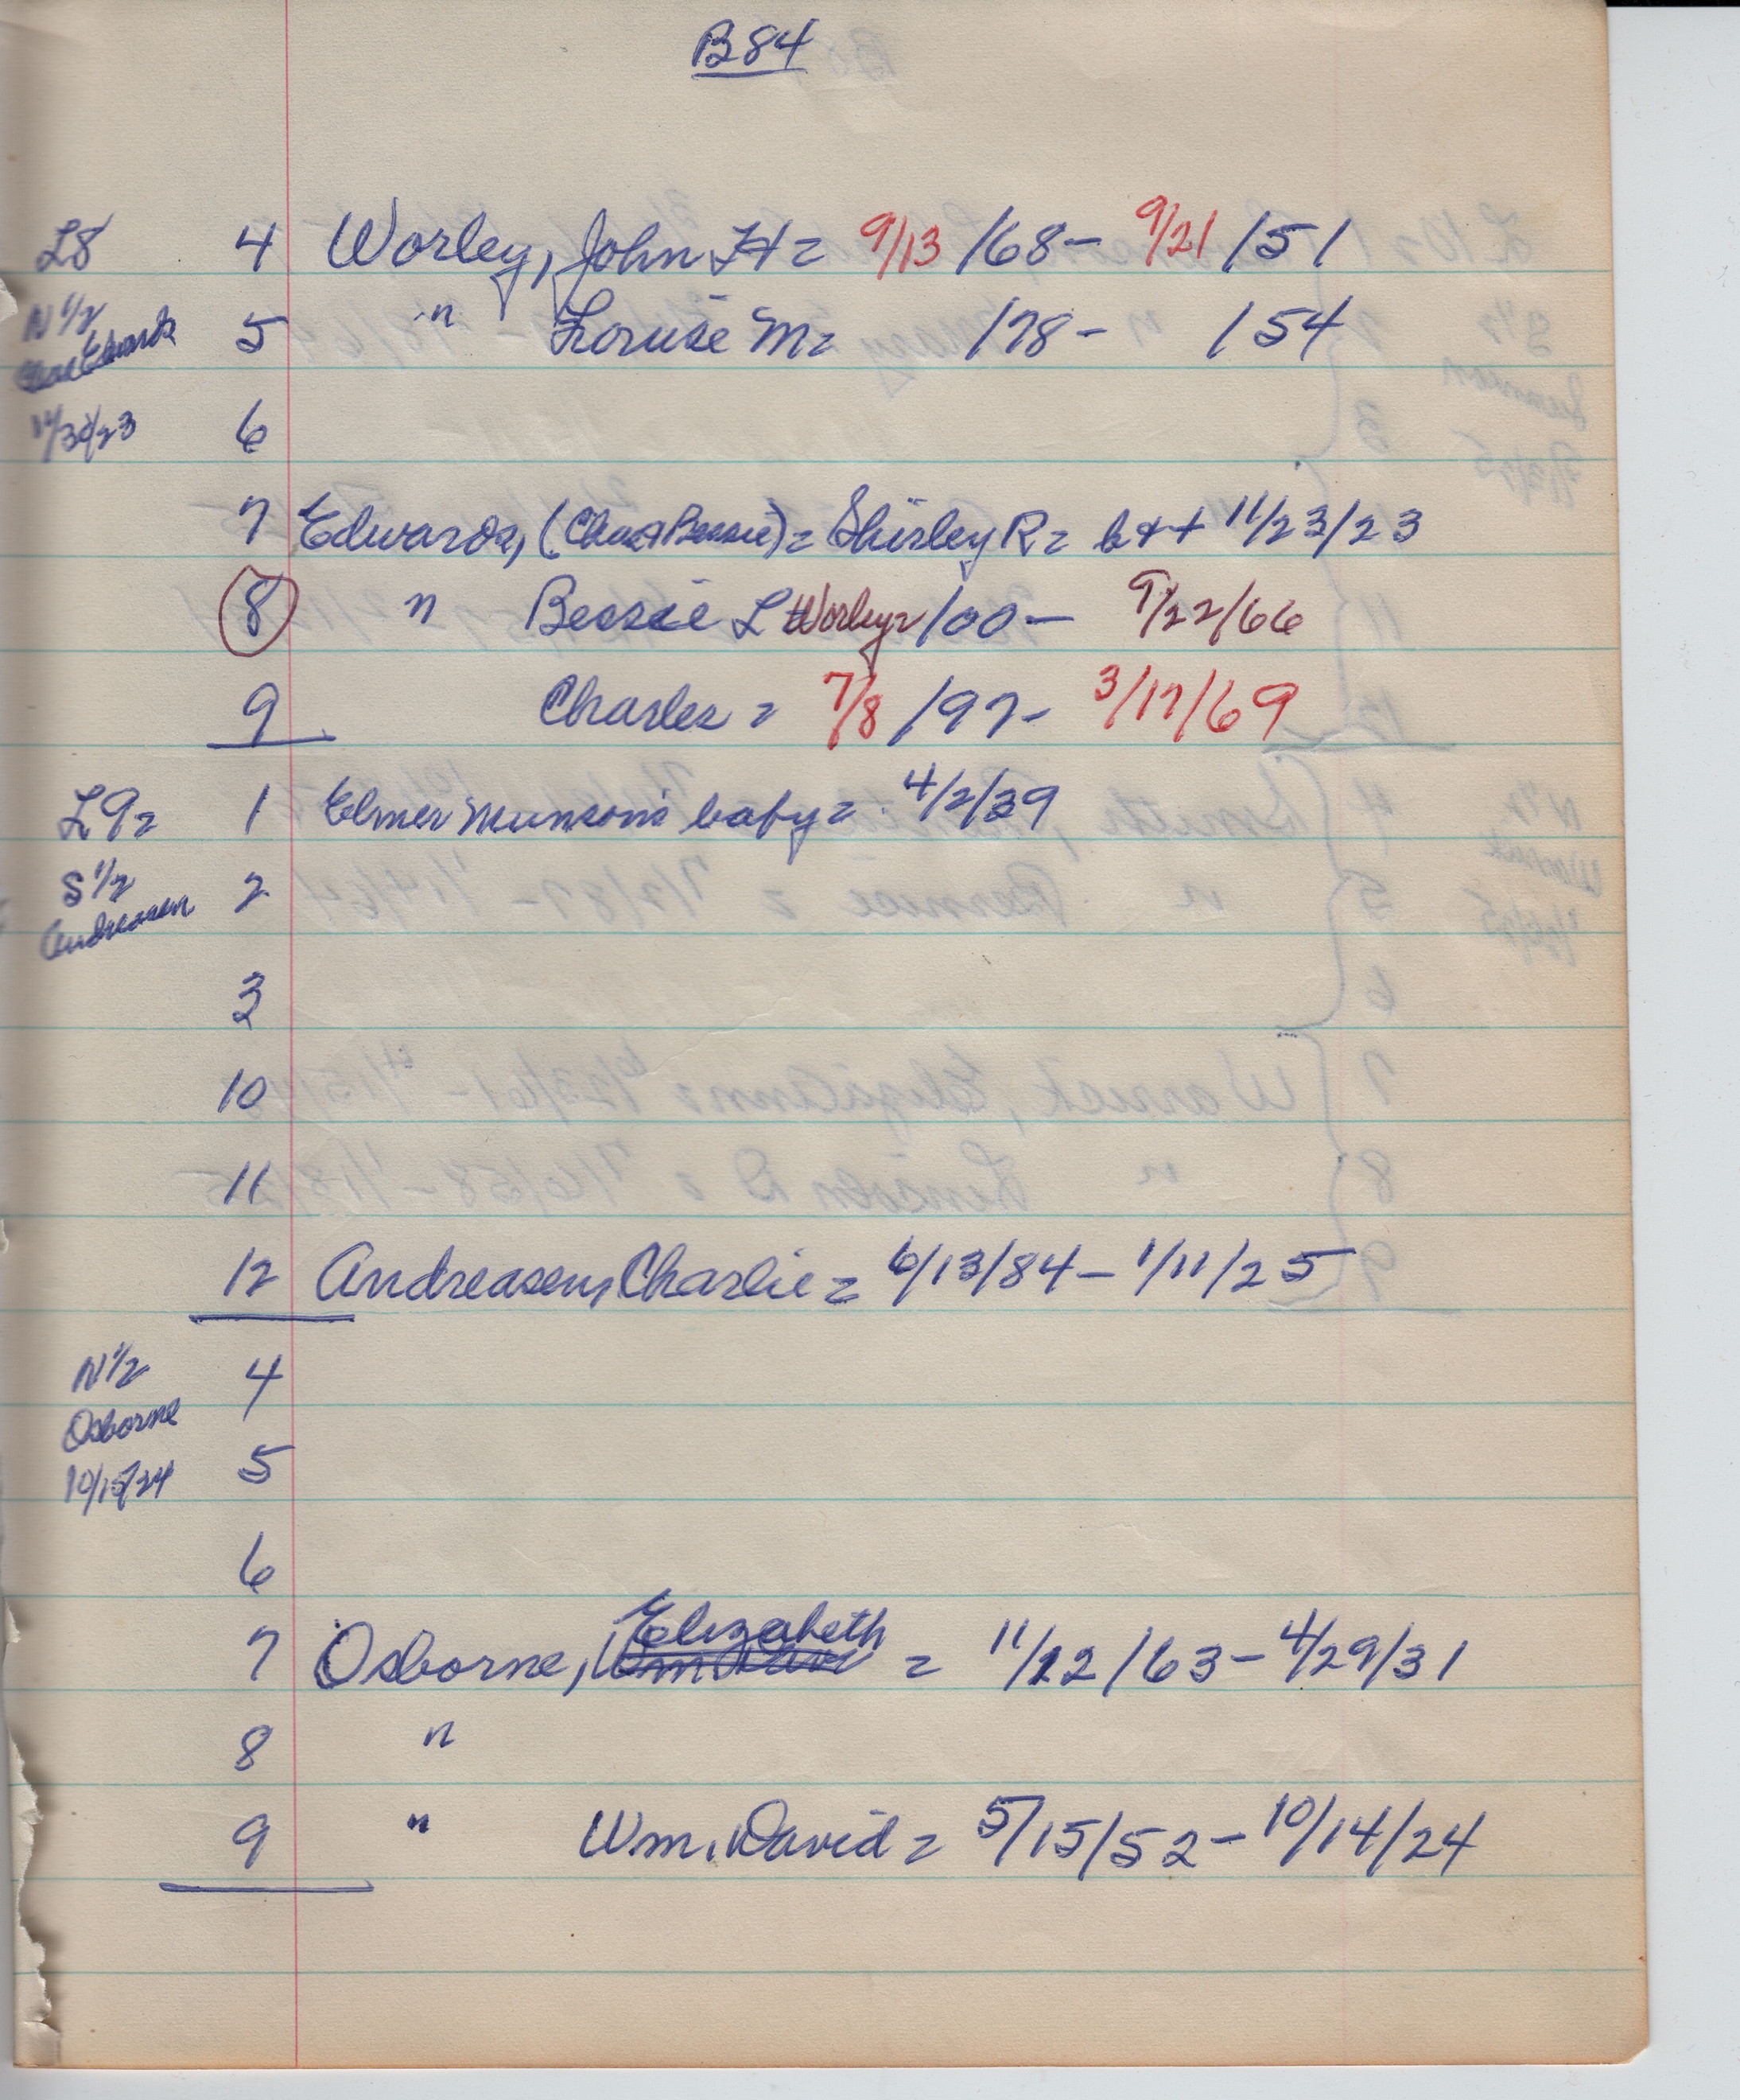 B84
L8 4 Worley, John H = 9/13/68 - 9/21/51
N 1/2 5 " Louise M = /78 - /54
Chas Edwards
11/30/23 6
7 Edwards, (Chas & Bessie) = Shirley R = b + + 11/23/23
8 " Bessie L Worley = /00 - 9/22/66
9 Charles = 7/8/97 - 3/17/69
L9 = 1 Elmer Munson's baby = 4/2/39
S 1/2 2
Andreasen
3
10
11
12 Andreasen, Charlie = 6/13/84 - 1/11/25
N 1/2 4
Osborne
10/15/24 5
6
7 Osborne, Elizabeth = 11/22/63 - 4/29/31
8 "
9 " Wm. David = 5/15/52 - 10/14/24